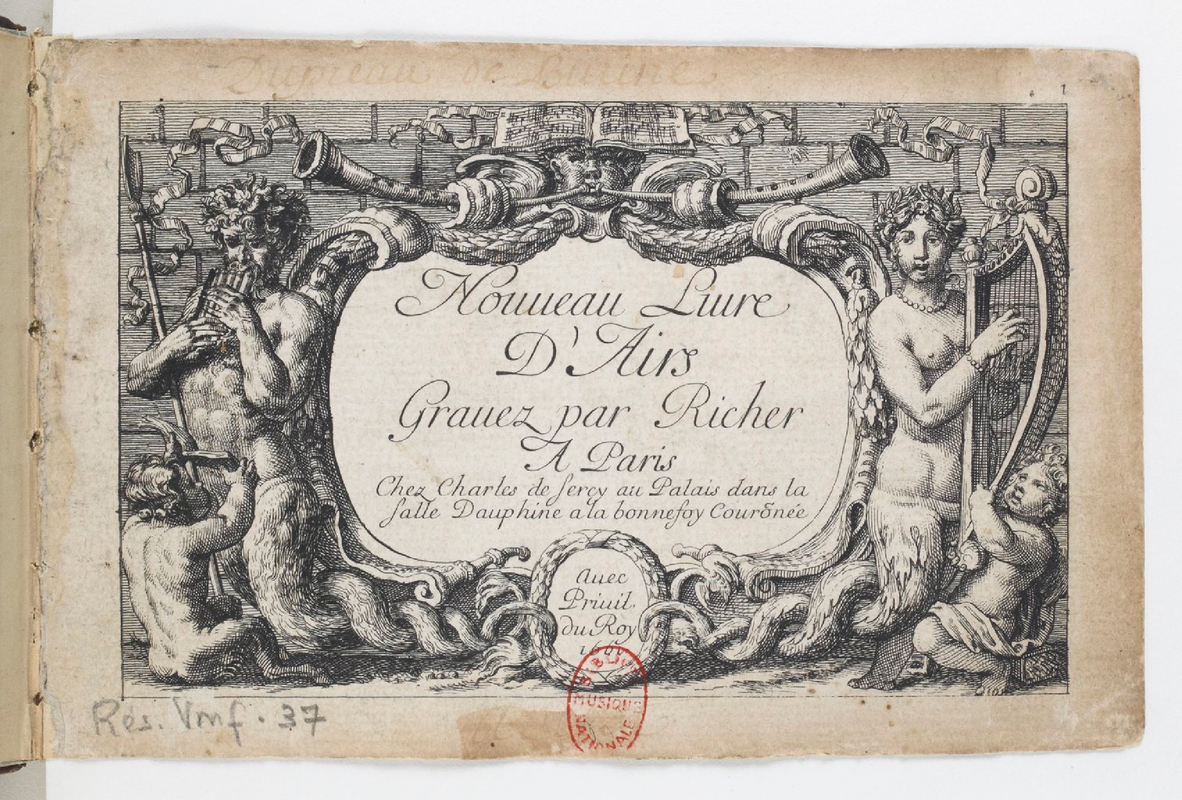 1
Nouueau Liure
D'Airs
Grauez par Richer
A Paris
Chez Charles de sercy au Palais dans la
salle Dauphine a la bonnefoy Courõnée
Auec
Priuil
du Roy
BIBLIOT
MUSIQUE
NATIONALE
Res. Vmf. 37